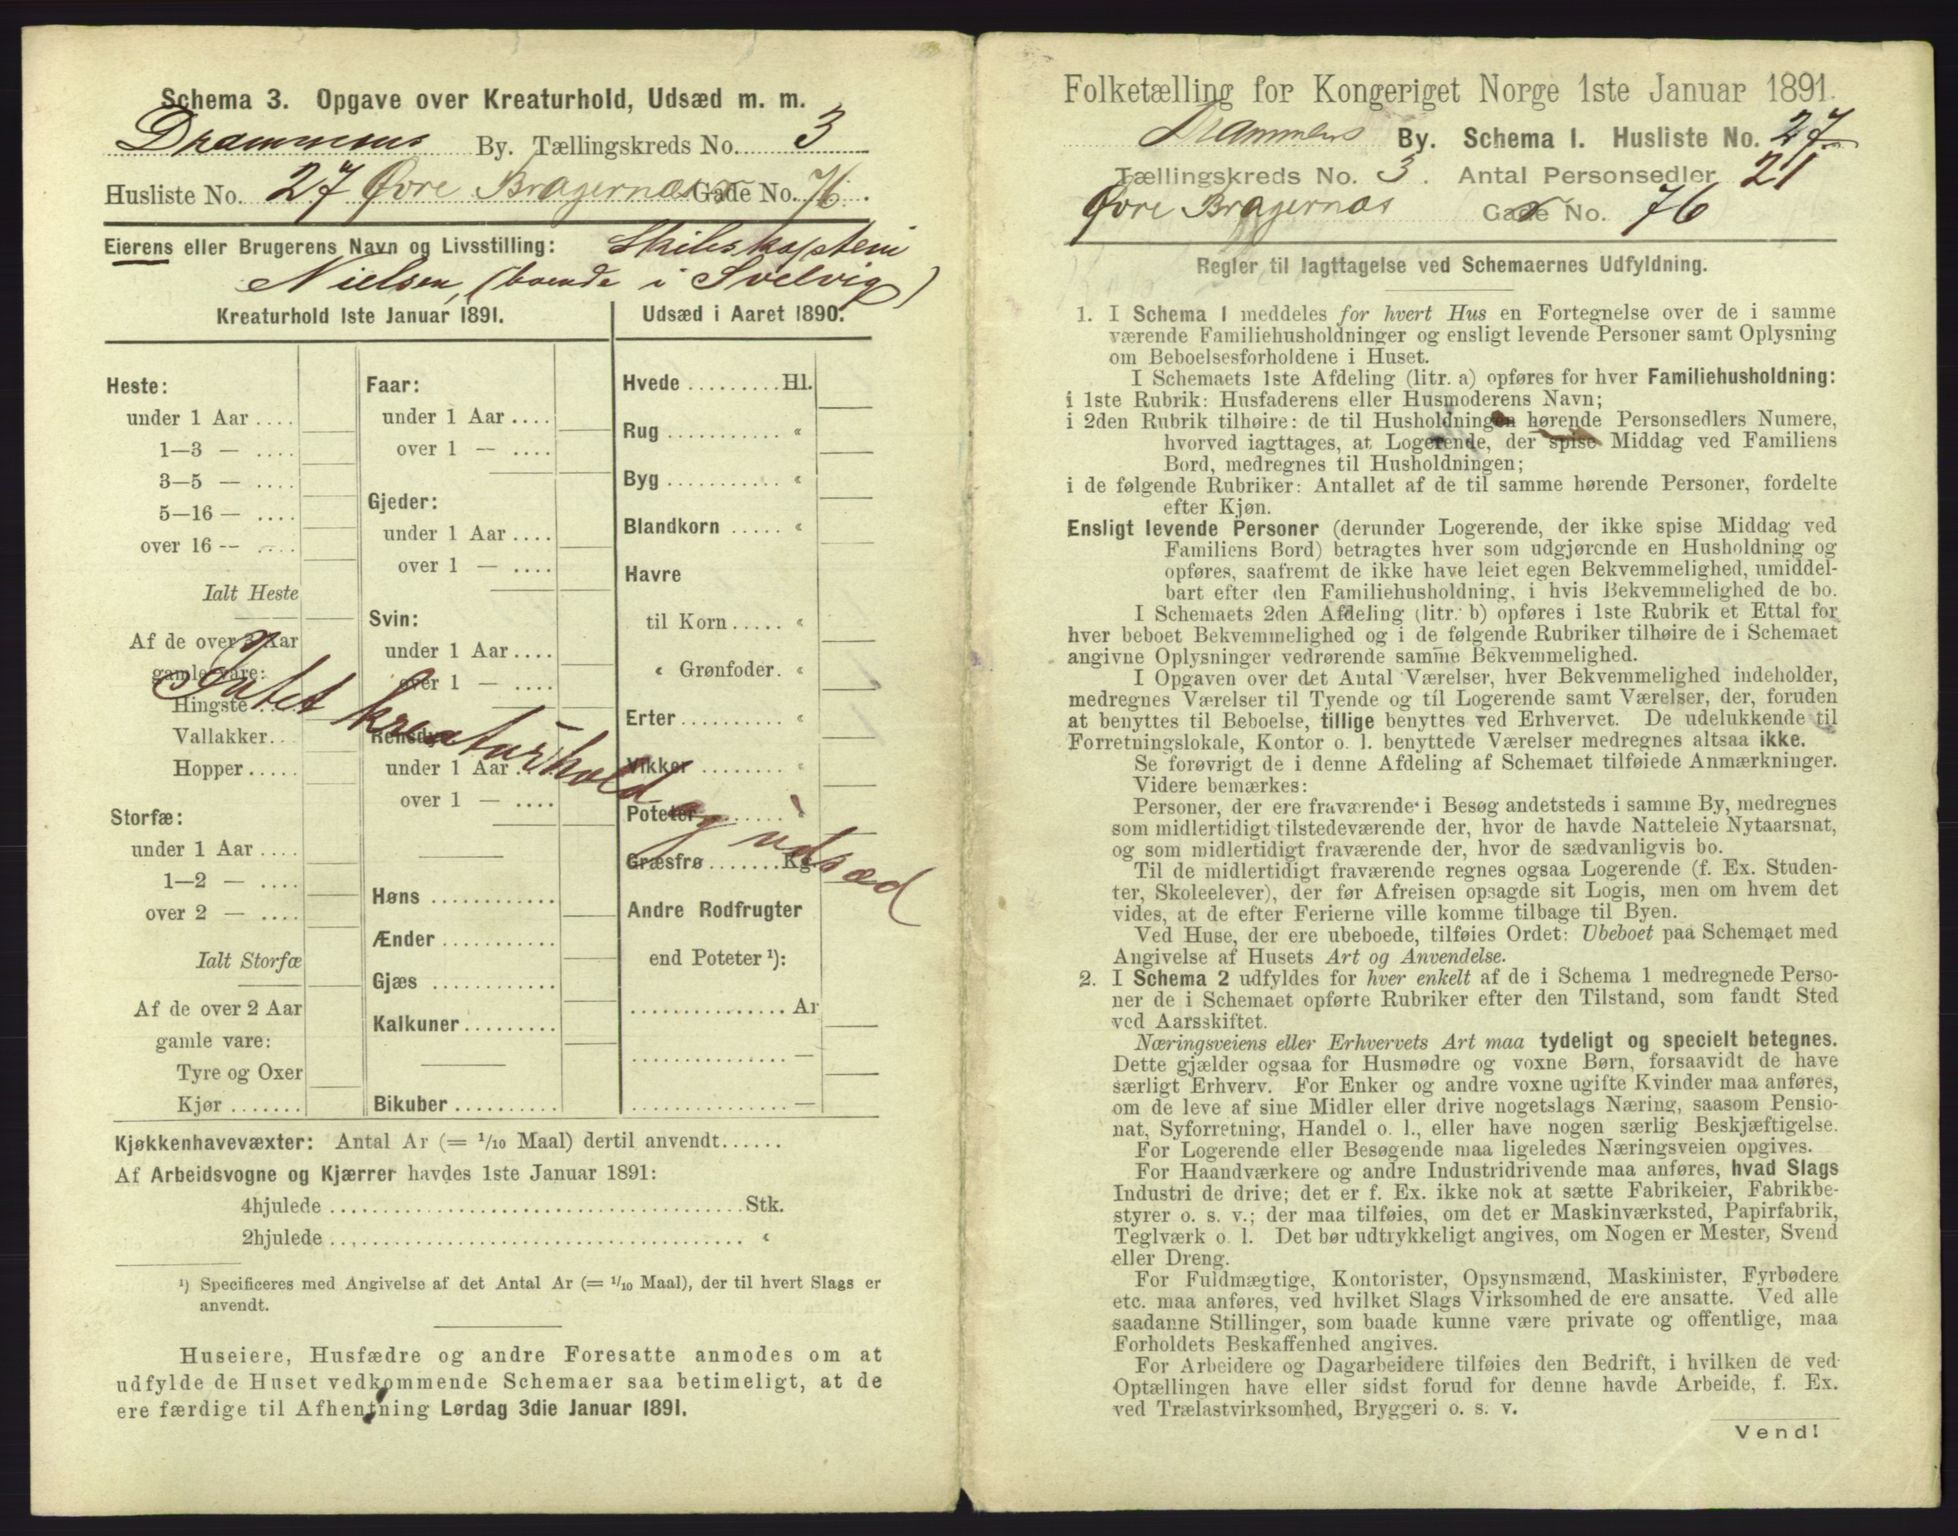 Schema 3. Opgave over Kreaturhold, Udsæd m. m.
Drammens By. Tællingskreds No. 3
Husliste No. 27 Øvre Bragernæs Gade No. 76.
Eierens eller Brugerens Navn og Livsstilling: Skibskaptein
Nielsen, (boende i Svelvig)
Kreaturhold 1ste Januar 1891.
Heste:
under 1 Aar ....
1—3 — ....
3—5 — ....
5—16 — ....
over 16 -- ....
Ialt Heste
Af de over 3 Aar
gamle vare:
Hingste ....
Vallakker..
Hopper .....
Storfæ:
under 1 Aar ....
1—2 — ....
over 2 — ....
Ialt Storfæ
Af de over 2 Aar
gamle vare:
Tyre og Oxer
Kjør .......
Faar:
under 1 Aar ....
over 1 — ....
Gjeder:
under 1 Aar ....
over 1 — ....
Svin:
under 1 Aar ....
over 1 — ....
Rensdyr
under 1 Aar ....
over 1 — ....
Høns ............
Ænder ...........
Gjæs ............
Kalkuner.........
Bikuber ..........
Udsæd i Aaret 1890.
Hvede .........Hl.
Rug ........... “
Byg ........... “
Blandkorn ..... “
Havre
til Korn ..... “
“ Grønfoder. “
Erter .......... “
Vikker ........ “
Poteter ....... “
Græsfrø .......Kg.
Andre Rodfrugter
end Poteter ¹):
............... Ar
............... —
............... —
Intet kreaturhold og udsæd
Kjøkkenhavevæxter: Antal Ar (= 1/10 Maal) dertil anvendt......
Af Arbeidsvogne og Kjærrer havdes 1ste Januar 1891:
4hjulede ..........................................Stk.
2hjulede .......................................... “
¹) Specificeres med Angivelse af det Antal Ar (= 1/10 Maal), der til hvert Slags er
anvendt.
Huseiere, Husfædre og andre Foresatte anmodes om at
udfylde de Huset vedkommende Schemaer saa betimeligt, at de
ere færdige til Afhentning Lørdag 3die Januar 1891.
Folketælling for Kongeriget Norge 1ste Januar 1891.
Drammens By. Schema I. Husliste No. 27
Tællingskreds No. 3. Antal Personsedler 21
Øvre Bragernæs Gade No. 76
Regler til Iagttagelse ved Schemaernes Udfyldning.
1. I Schema 1 meddeles for hvert Hus en Fortegnelse over de i samme
værende Familiehusholdninger og ensligt levende Personer samt Oplysning
om Beboelsesforholdene i Huset.
I Schemaets 1ste Afdeling (litr. a) opføres for hver Familiehusholdning:
i 1ste Rubrik: Husfaderens eller Husmoderens Navn;
i 2den Rubrik tilhøire: de til Husholdningen hørende Personsedlers Numere,
hvorved iagttages, at Logerende, der spise Middag ved Familiens
Bord, medregnes til Husholdningen;
i de følgende Rubriker: Antallet af de til samme hørende Personer, fordelte
efter Kjøn.
Ensligt levende Personer (derunder Logerende, der ikke spise Middag ved
Familiens Bord) betragtes hver som udgjørende en Husholdning og
opføres, saafremt de ikke have leiet egen Bekvemmelighed, umiddel-
bart efter den Familiehusholdning, i hvis Bekvemmelighed de bo.
I Schemaets 2den Afdeling (litr. b) opføres i 1ste Rubrik et Ettal for
hver beboet Bekvemmelighed og i de følgende Rubriker tilhøire de i Schemaet
angivne Oplysninger vedrørende samme Bekvemmelighed.
I Opgaven over det Antal Værelser, hver Bekvemmelighed indeholder,
medregnes Værelser til Tyende og til Logerende samt Værelser, der, foruden
at benyttes til Beboelse, tillige benyttes ved Erhvervet. De udelukkende til
Forretningslokale, Kontor o. l. benyttede Værelser medregnes altsaa ikke.
Se forøvrigt de i denne Afdeling af Schemaet tilføiede Anmærkninger.
Videre bemærkes:
Personer, der ere fraværende i Besøg andetsteds i samme By, medregnes
som midlertidigt tilstedeværende der, hvor de havde Natteleie Nytaarsnat,
og som midlertidigt fraværende der, hvor de sædvanligvis bo.
Til de midlertidigt fraværende regnes ogsaa Logerende (f. Ex. Studen-
ter, Skoleelever), der før Afreisen opsagde sit Logis, men om hvem det
vides, at de efter Ferierne ville komme tilbage til Byen.
Ved Huse, der ere ubeboede, tilføies Ordet: Ubeboet paa Schemaet med
Angivelse af Husets Art og Anvendelse.
2. I Schema 2 udfyldes for hver enkelt af de i Schema 1 medregnede Perso-
ner de i Schemaet opførte Rubriker efter den Tilstand, som fandt Sted
ved Aarsskiftet.
Næringsveiens eller Erhvervets Art maa tydeligt og specielt betegnes.
Dette gjælder ogsaa for Husmødre og voxne Børn, forsaavidt de have
særligt Erhverv. For Enker og andre voxne ugifte Kvinder maa anføres,
om de leve af sine Midler eller drive nogetslags Næring, saasom Pensio-
nat, Syforretning, Handel o. l., eller have nogen særlig Beskjæftigelse.
For Logerende eller Besøgende maa ligeledes Næringsveien opgives.
For Haandværkere og andre Industridrivende maa anføres, hvad Slags
Industri de drive; det er f. Ex. ikke nok at sætte Fabrikeier, Fabrikbe-
styrer o. s. v.; der maa tilføies, om det er Maskinværksted, Papirfabrik,
Teglværk o. l. Det bør udtrykkeligt angives, om Nogen er Mester, Svend
eller Dreng.
For Fuldmægtige, Kontorister, Opsynsmænd, Maskinister, Fyrbødere
etc. maa anføres, ved hvilket Slags Virksomhed de ere ansatte. Ved alle
saadanne Stillinger, som baade kunne være private og offentlige, maa
Forholdets Beskaffenhed angives.
For Arbeidere og Dagarbeidere tilføies den Bedrift, i hvilken de ved
Optællingen have eller sidst forud for denne havde Arbeide, f. Ex.
ved Trælastvirksomhed, Bryggeri o. s. v.
Vend!